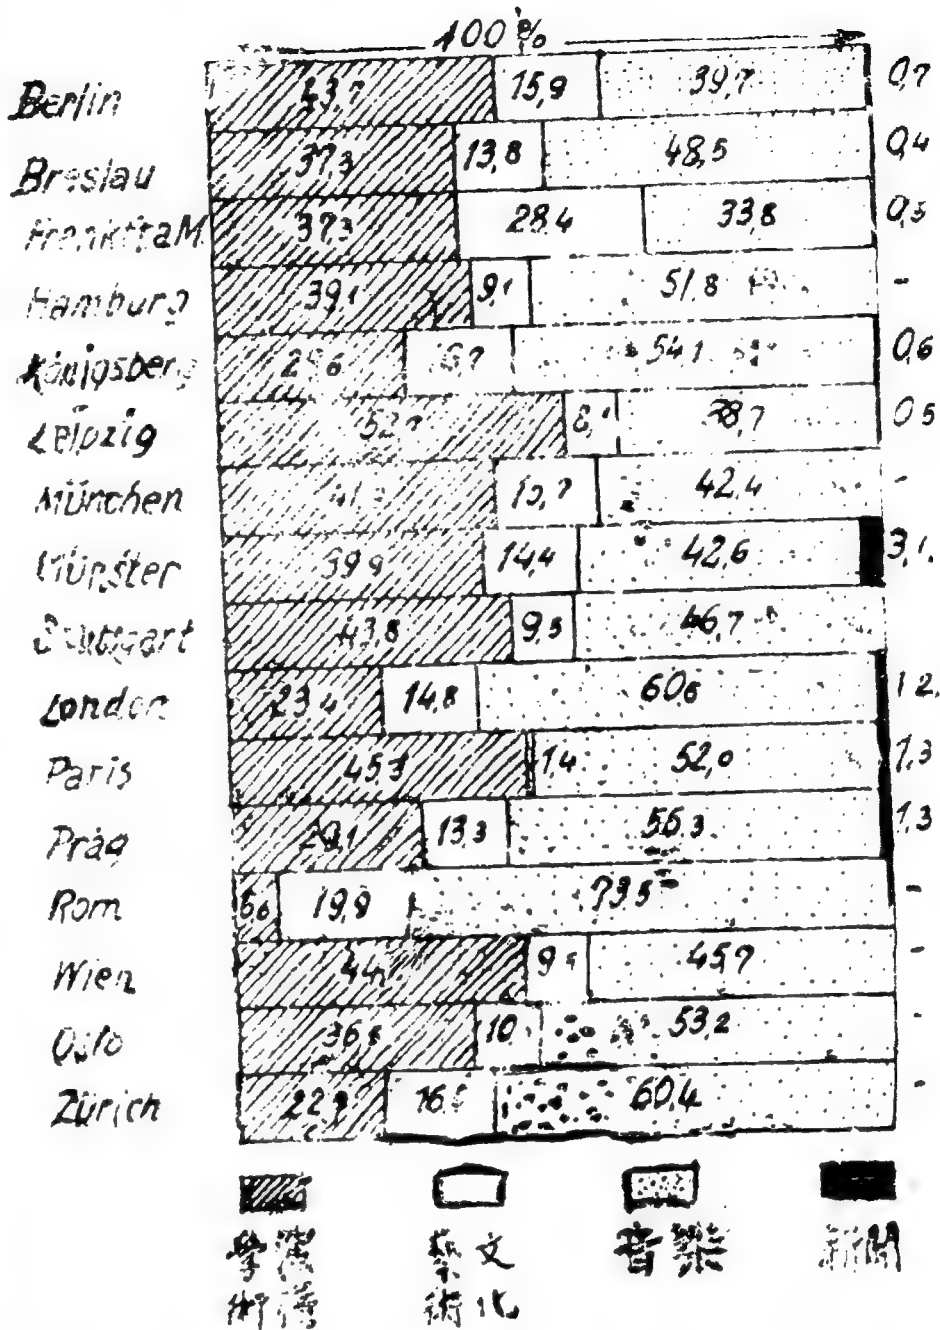 100%
Berlin 43,7 15,9 39,7 0,7
Breslau 37,3 13,8 48,5 0,4
Frankft a M 37,3 28,4 33,8 0,5
Hamburg 39,1 9,1 51,8 -
Königsberg 28,6 16,7 54,1 0,6
Leipzig 52,7 8,1 38,7 0,5
München 15,7 42,4 -
Münster 39,9 14,4 42,6 3,1
Stuttgart 43,8 9,5 46,7
London 23,4 14,8 60,6 1,2
Paris 45,3 1,4 52,0 1,3
Prag 29,1 13,3 56,3 1,3
Rom 6,6 19,9 73,5 -
Wien 44, 9 45,7 -
Oslo 36, 10 53,2 -
Zürich 22,9 16, 60,4 -
學 藝文 音樂 新聞
術 術化